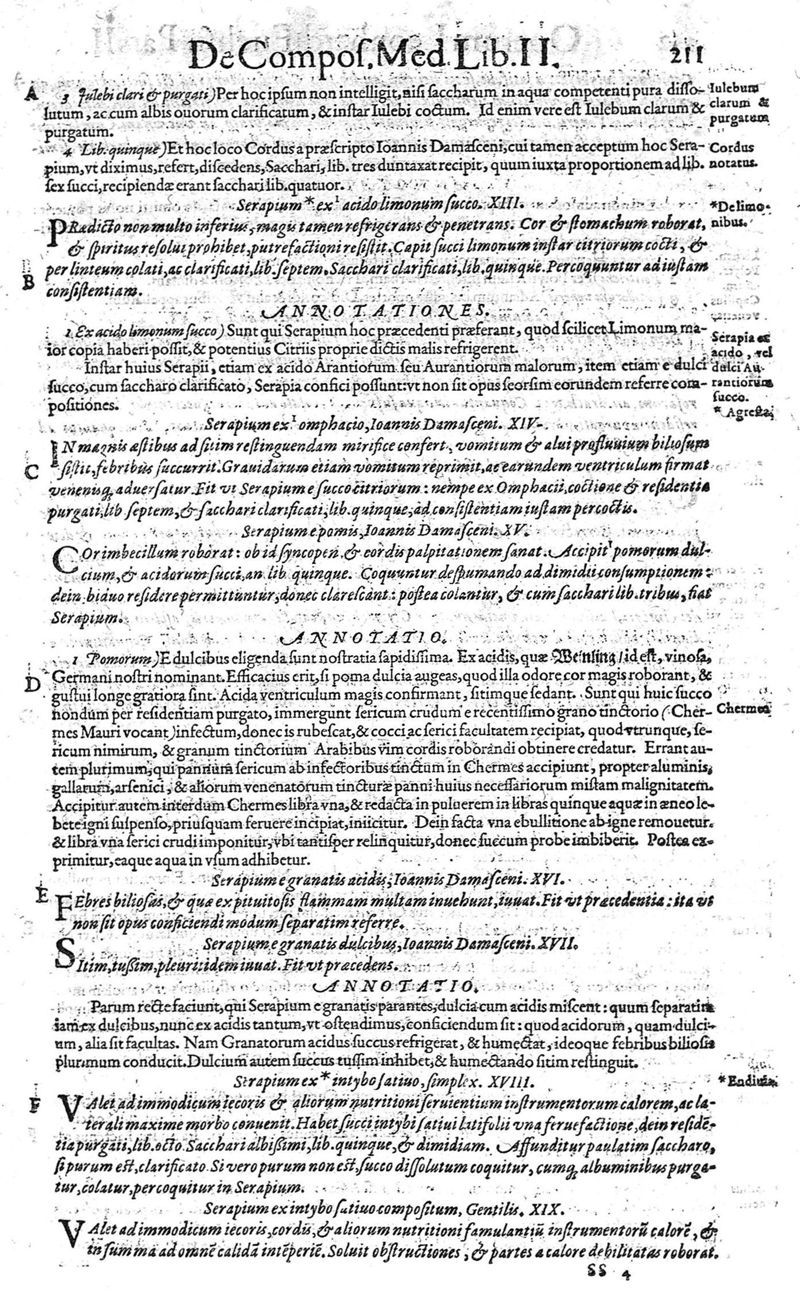 De Compos. Med. Lib. II. 211
A 3 Iulebi clari & purgati) Per hoc ipsum non intelligit, nisi saccharum in aqua competenti pura disso-
lutum, ac cum albis ovorum clarificatum, & instar Iulebi coctum. Id enim vere est Iulebum clarum &
purgatum.
Iulebum
clarum &
purgatum
4 Lib. quinque) Et hoc loco Cordus a præscripto Ioannis Damasceni, cui tamen acceptum hoc Sera-
pium, vt diximus, refert, discedens, Sacchari, lib. tres duntaxat recipit, quum iuxta proportionem ad lib.
sex succi, recipiendæ erant sacchari lib. quatuor.
Cordus
notatus.
Serapium* ex acido limonum succo. XIII.
*De limo-
nibus.
PRædicto non multo inferius, magis tamen refrigerans & penetrans. Cor & stomachum roborat,
& spiritus resolui prohibet, putrefactioni resistit. Capit succi limonum instar citriorum cocti, &
per linteum colati, ac clarificati, lib. septem. Sacchari clarificati, lib. quinque. Percoquuntur ad iustam
B
consistentiam.
ANNOTATIONES.
1 Ex acido limonum succo) Sunt qui Serapium hoc præcedenti præferant, quod scilicet Limonum ma-
ior copia haberi possit, & potentius Citriis proprie dictis malis refrigerent.
Instar huius Serapii, etiam ex acido Arantiorum seu Aurantiorum malorum, item etiam e dulci
succo, cum saccharo clarificato, Serapia confici possunt: vt non sit opus seorsim eorundem referre com-
positiones.
Serapia ex
acido, vel
dulci Au-
rantiorum
succo.
* Agresta.
Serapium ex* omphacio, Ioannis Damasceni. XIV.
IN magnis æstibus ad sitim restinguendam mirifice confert, vomitum & alui profluuium biliosum
C sistit, febribus succurrit. Grauidarum etiam vomitum reprimit, ac earundem ventriculum firmat
venenisq; aduersatur. Fit vt Serapium e succo citriorum: nempe ex Omphacii, coctione & residentia
purgati, lib. septem, & sacchari clarificati, lib. quinque, ad consistentiam iustam percoctis.
Serapium e pomis, Ioannis Damasceni. XV.
COr imbecillum roborat: ob id syncopen & cordis palpitationem sanat. Accipit pomorum dul-
cium, & acidorum succi, an. lib. quinque. Coquuntur despumando ad dimidii consumptionem:
dein biduo residere permittuntur, donec clarescant: postea colantur, & cum sacchari lib. tribus, fiat
Serapium.
ANNOTATIO.
1 Pomorum) E dulcibus eligenda sunt nostratia sapidissima. Ex acidis, quæ Weinling, id est, vinosa,
D Germani nostri nominant. Efficacius erit, si poma dulcia augeas, quod illa odore cor magis roborant, &
gustui longe gratiora sint. Acida ventriculum magis confirmant, sitimque sedant. Sunt qui huic succo
nondum per residentiam purgato, immergunt sericum crudum e recentissimo grano tinctorio (Cher-
Chermes
mes Mauri vocant) infectum, donec is rubescat, & cocci ac serici facultatem recipiat, quod vtrunque, se-
ricum nimirum, & granum tinctorium Arabibus vim cordis roborandi obtinere credatur. Errant au-
tem plurimum, qui pannum sericum ab infectoribus tinctum in Chermes accipiunt, propter aluminis,
gallarum, arsenici, & aliorum venenatorum tincturæ panni huius necessariorum mistam malignitatem.
Accipitur autem interdum Chermes libra vna, & redacta in puluerem in libras quinque aquæ in æneo le-
bete igni suspenso, priusquam feruere incipiat, iniicitur. Dein facta vna ebullitione ab igne remouetur.
& libra vna serici crudi imponitur, vbi tantisper relinquitur, donec succum probe imbiberit. Postea ex-
primitur, eaque aqua in vsum adhibetur.
Serapium e granatis acidis, Ioannis Damasceni. XVI.
E FEbres biliosas, & quæ ex pituitosis flammam multam inuehunt, iuuat. Fit vt præcedentia: ita vt
non sit opus conficiendi modum separatim referre.
Serapium e granatis dulcibus, Ioannis Damasceni. XVII.
SItim, tussim, pleuritidem iuuat. Fit vt præcedens.
ANNOTATIO.
Parum recte faciunt, qui Serapium e granatis parantes, dulcia cum acidis miscent: quum separatim
iam ex dulcibus, nunc ex acidis tantum, vt ostendimus, conficiendum sit: quod acidorum, quam dulci-
um, alia sit facultas. Nam Granatorum acidus succus refrigerat, & humectat, ideoque febribus biliosis
plurimum conducit. Dulcium autem succus tussim inhibet, & humectando sitim restinguit.
Serapium ex* intybo satiuo, simplex. XVIII.
*Endiuia.
F VAlet ad immodicum iecoris & aliorum nutritioni seruientium instrumentorum calorem, ac la-
terali maxime morbo conuenit. Habet succi intybi satiui latifolii vna feruefactione, dein residen-
tia purgati, lib. octo. Sacchari albissimi, lib. quinque, & dimidiam. Affunditur paulatim saccharo,
si purum est, clarificato. Si vero purum non est, succo dissolutum coquitur, cumq; albuminibus purga-
tur, colatur, percoquitur in Serapium.
Serapium ex intybo satiuo compositum, Gentilis. XIX.
VAlet ad immodicum iecoris, cordis, & aliorum nutritioni famulantiũ instrumentorũ calorẽ, &
in summa ad omnẽ calidã intẽperiẽ. Soluit obstructiones, & partes a calore debilitatas roborat.
SS 4